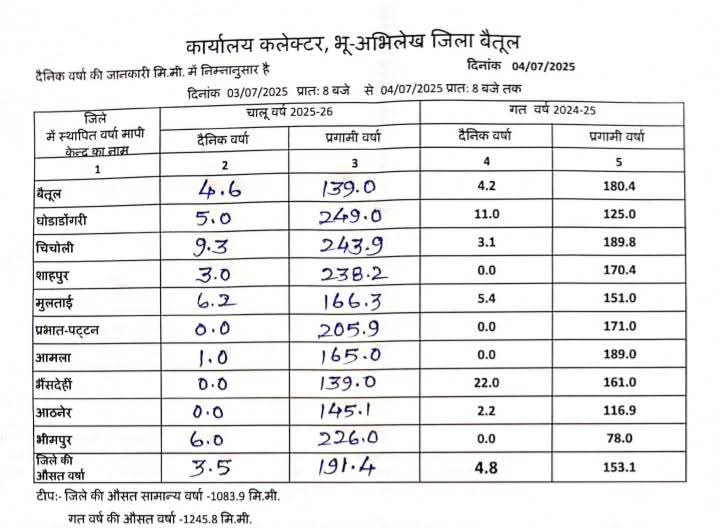 कार्यालय कलेक्टर, भू-अभिलेख जिला बैतूल
दैनिक वर्षा की जानकारी मि.मी. में निम्नानुसार है दिनांक 04/07/2025
दिनांक 03/07/2025 प्रात: 8 बजे से 04/07/2025 प्रात: 8 बजे तक
जिले में स्थापित वर्षा मापी केन्द्र का नाम चालू वर्ष 2025-26 गत वर्ष 2024-25
दैनिक वर्षा प्रगामी वर्षा दैनिक वर्षा प्रगामी वर्षा
1 2 3 4 5
बैतूल 4.6 139.0 4.2 180.4
घोडाडोंगरी 5.0 249.0 11.0 125.0
चिचोली 9.3 243.9 3.1 189.8
शाहपुर 3.0 238.2 0.0 170.4
मुलताई 6.2 166.3 5.4 151.0
प्रभात-पट्टन 0.0 205.9 0.0 171.0
आमला 1.0 165.0 0.0 189.0
भैंसदेहीं 0.0 139.0 22.0 161.0
आठनेर 0.0 145.1 2.2 116.9
भीमपुर 6.0 226.0 0.0 78.0
जिले की औसत वर्षा 3.5 191.4 4.8 153.1
टीप:- जिले की औसत सामान्य वर्षा -1083.9 मि.मी.
गत वर्ष की औसत वर्षा -1245.8 मि.मी.